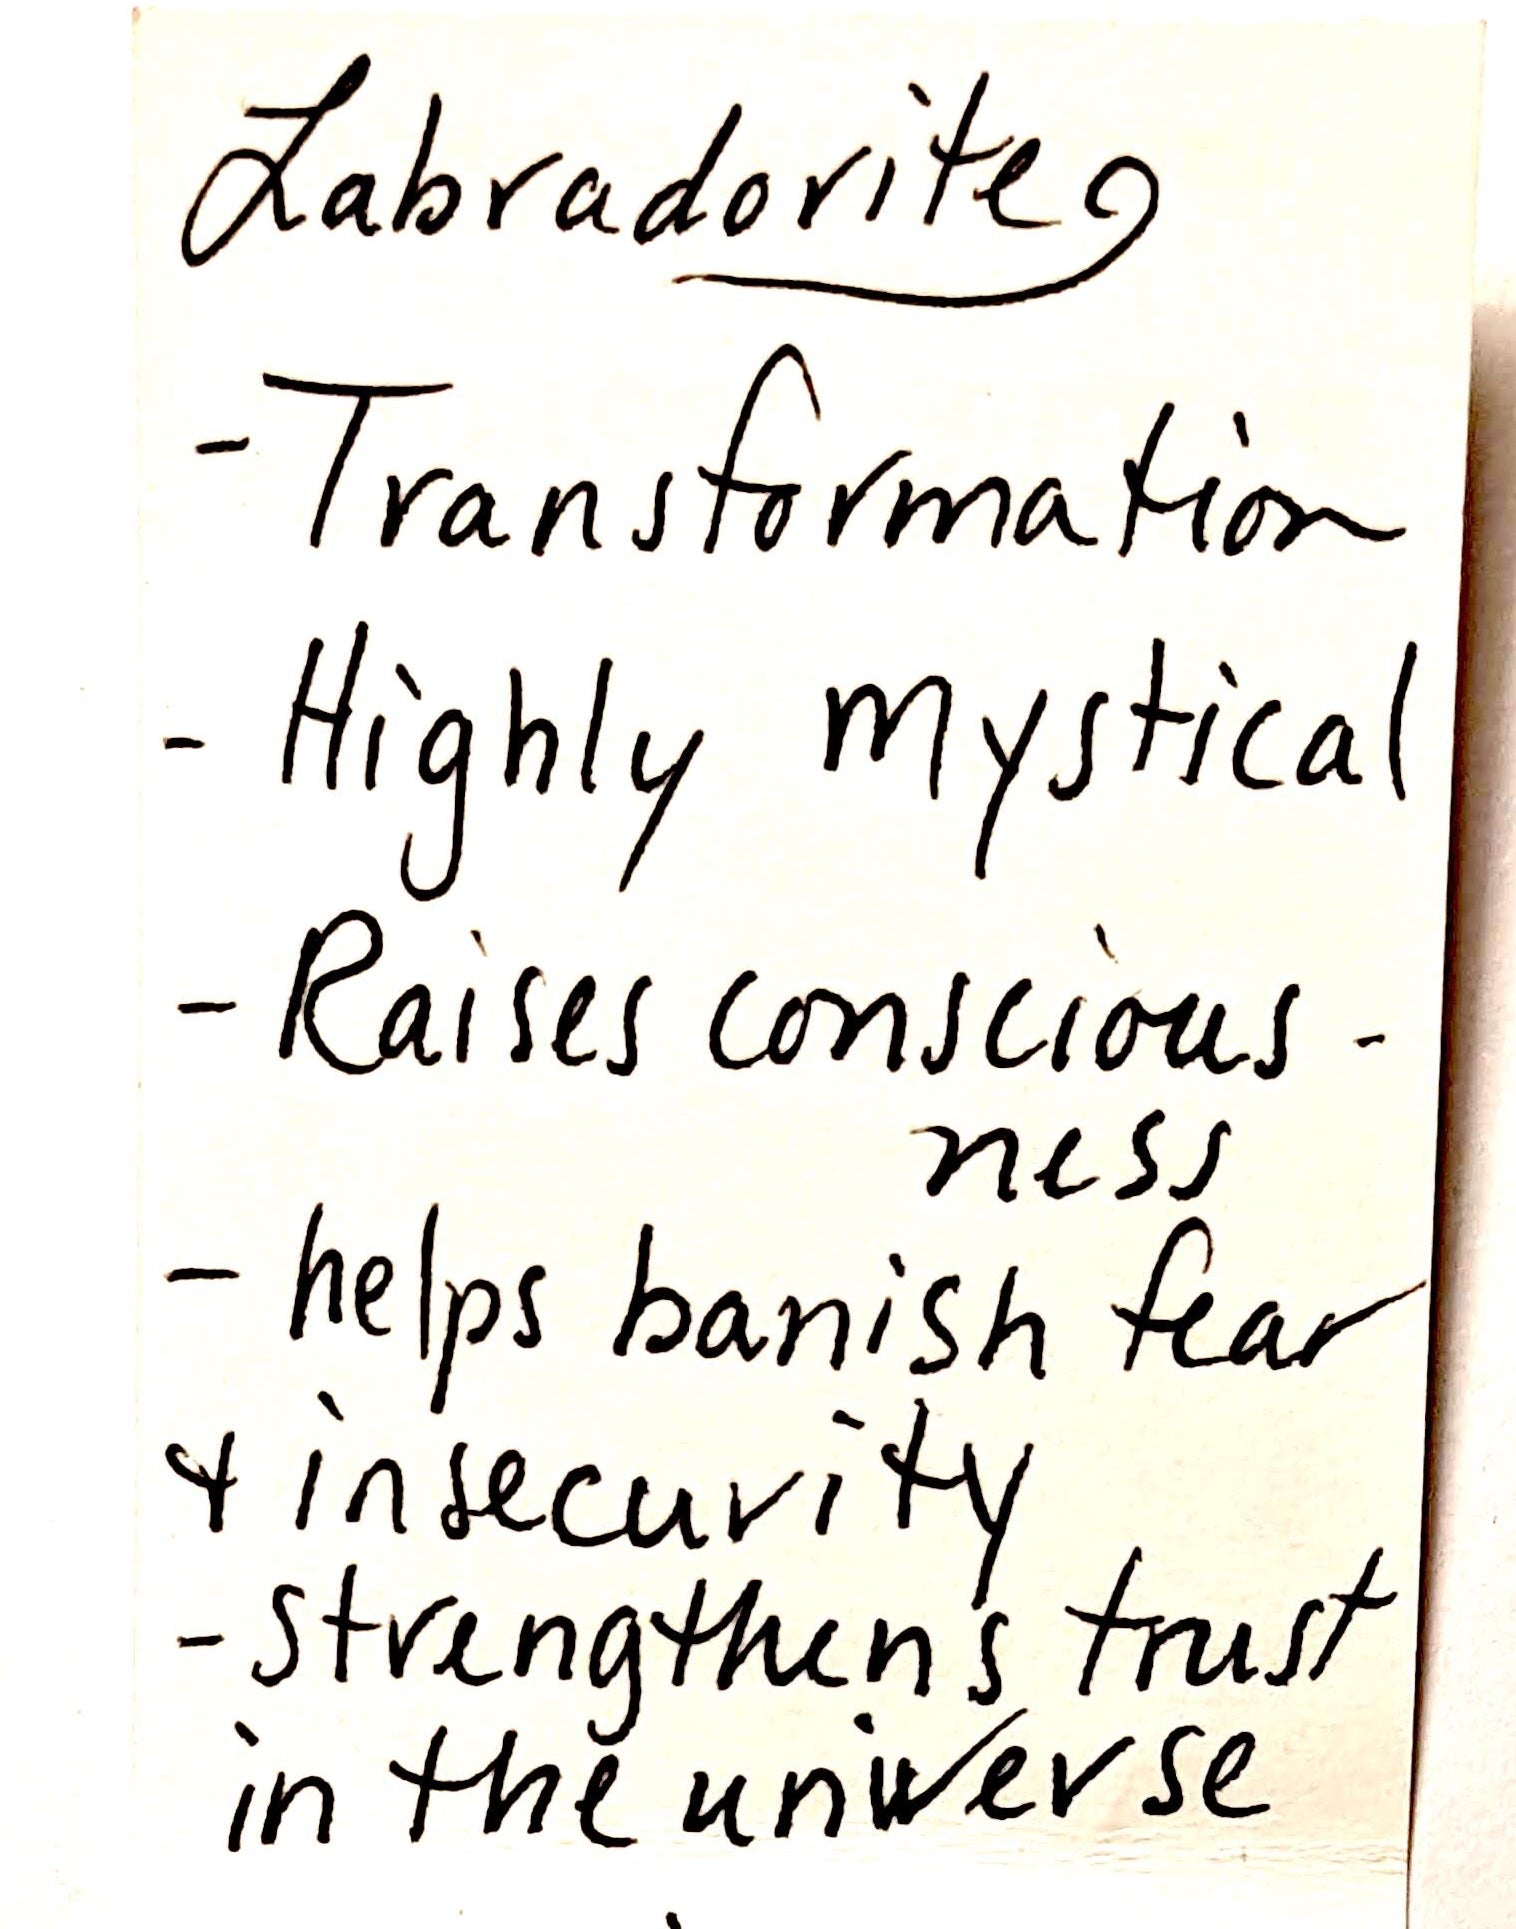 Labradorite
- Transformation
- Highly mystical
- Raises conscious-
ness
- helps banish fear
+ insecurity
- strengthens trust
in the universe